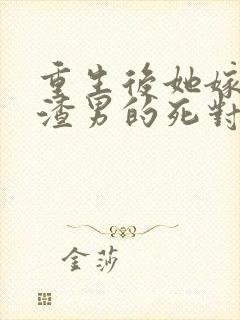 重生後她嫁
渣男的死對
金莎